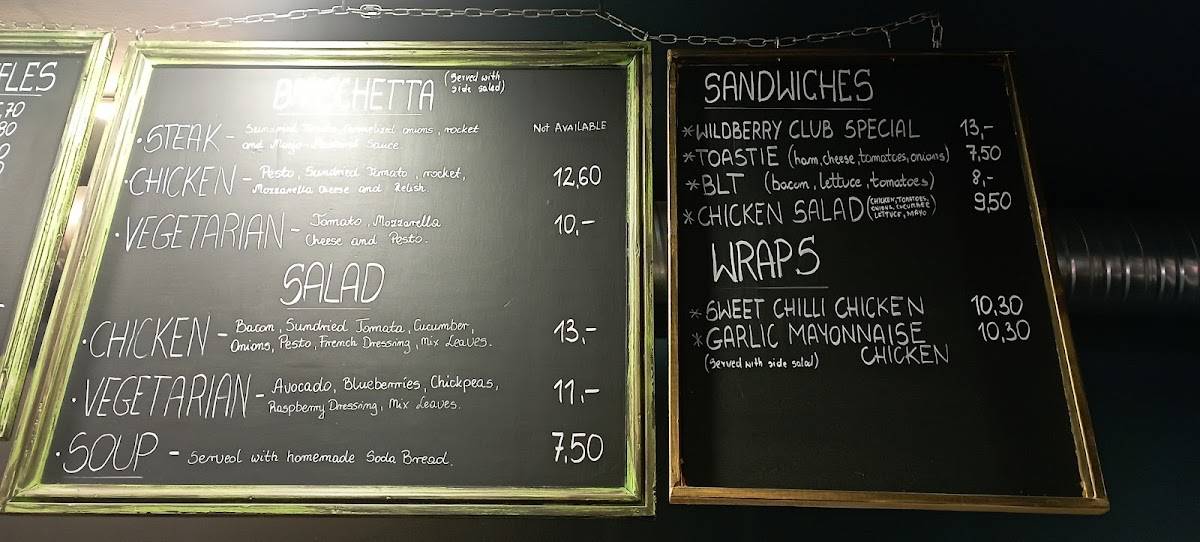 ELES
,70
80
BRUSCHETTA (Served with
side salad)
• STEAK - Sundried Tomato, Caramelized onions, rocket NOT AVAILABLE
and Mayo-Mustard Sauce.
• CHICKEN - Pesto, Sundried Tomato, rocket, 12,60
Mozzarella Cheese and Relish.
• VEGETARIAN - Tomato, Mozzarella 10,-
Cheese and Pesto.
SALAD
• CHICKEN - Bacon, Sundried Tomata, Cucumber, 13,-
Onions, Pesto, French Dressing, Mix Leaves.
• VEGETARIAN - Avocado, Blueberries, Chickpeas, 11,-
Raspberry Dressing, Mix Leaves.
• SOUP - Served with homemade Soda Bread. 7,50
SANDWICHES
* WILDBERRY CLUB SPECIAL 13,-
* TOASTIE (ham, cheese, tomatoes, onions) 7,50
* BLT (bacon, lettuce, tomatoes) 8,-
* CHICKEN SALAD (CHICKEN, TOMATOES, 9,50
ONIONS, CUCUMBER
LETTUCE, MAYO)
WRAPS
* SWEET CHILLI CHICKEN 10,30
* GARLIC MAYONNAISE 10,30
CHICKEN
(Served with side salad)